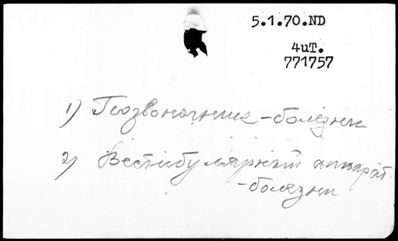 5.1.70.ND
4чт.
771757
1) Позвоночник - болезни
2) Вестибулярный аппарат
- болезни